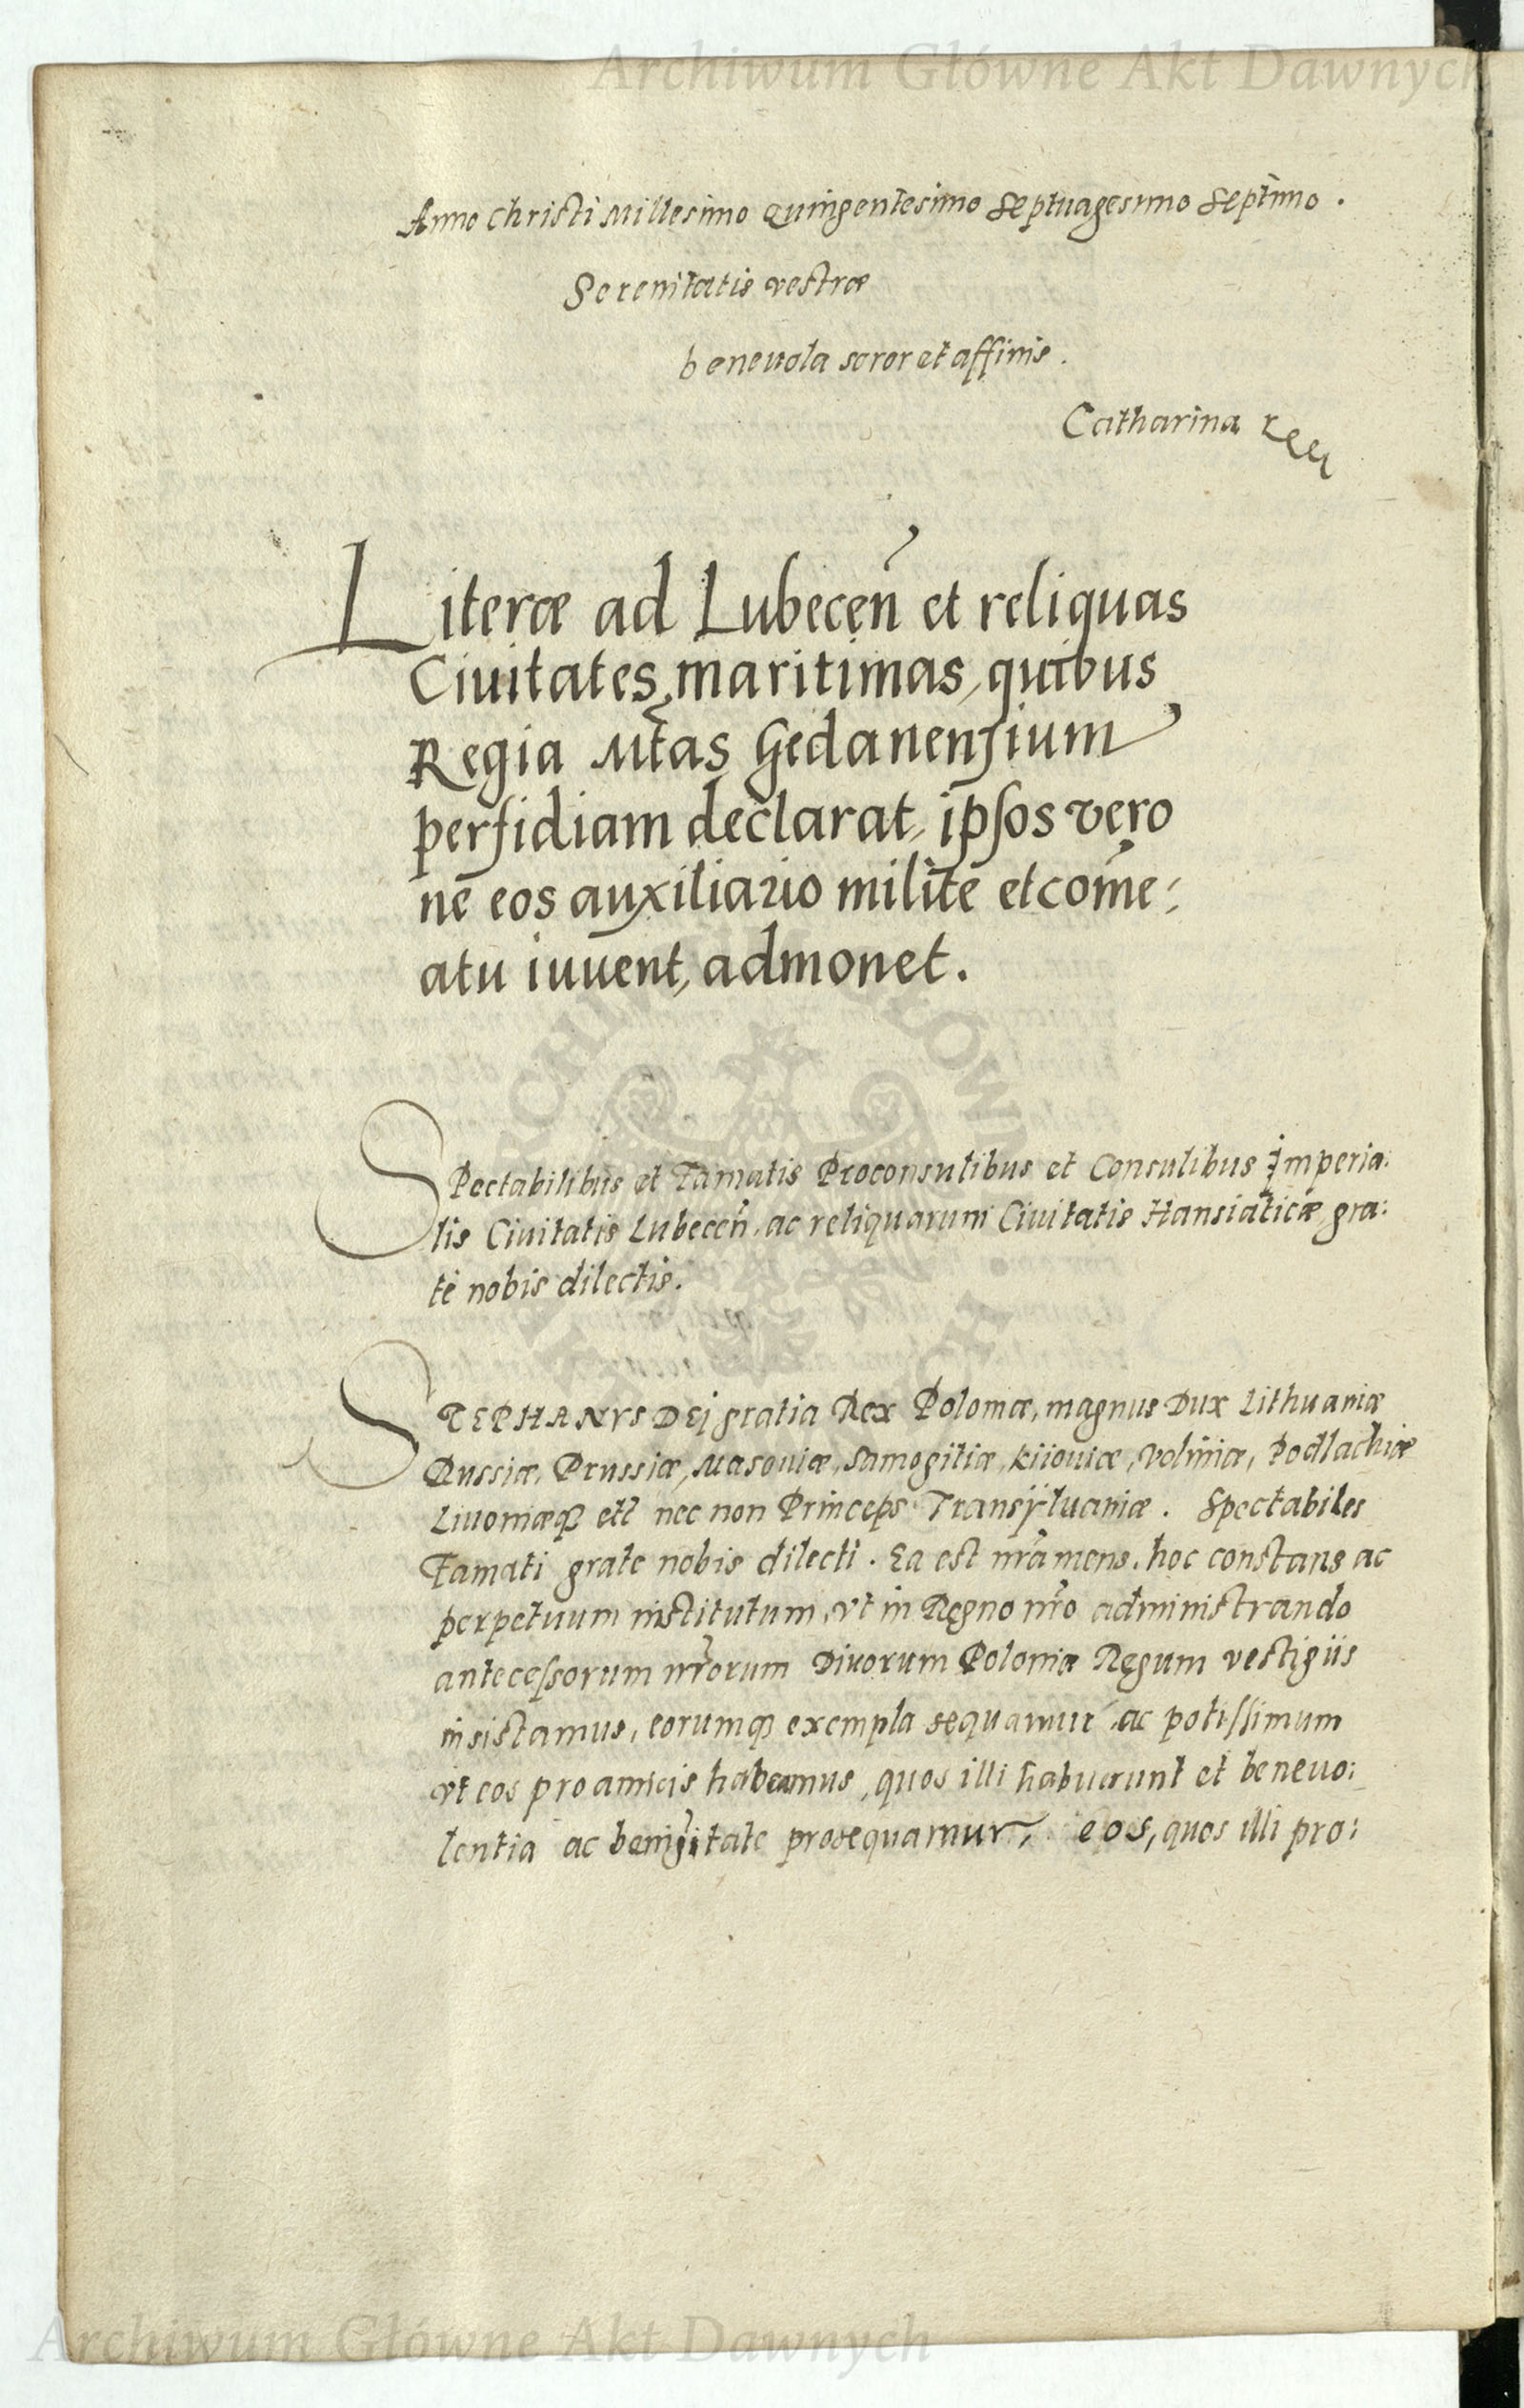 Archiwum Główne Akt Dawnych
Anno Christi Millesimo Quingentesimo Septuagesimo Septimo.
Serenitatis vestræ
beneuola soror et affinis.
Catharina
Literæ ad Lubecen̄ et reliquas
Ciuitates maritimas, quibus
Regia Mtas Gedanensium
perfidiam declarat, ipsos vero
ne eos auxiliario milite et com̄e:
atu iuuent, admonet.
SPectabilibus et Famatis Proconsulibus et Consulibus Imperia:
lis Ciuitatis Lubecen̄. ac reliquarum Ciuitatis Hansiaticæ gra:
te nobis dilectis.
STEPHANVS DEj gratia Rex Poloniæ, magnus Dux Lithuaniæ
Russiæ, Prussiæ, Masouiæ, Samogitiæ, Kiiouiæ, Voliniæ, Podlachiæ
Liuoniæq etc nec non Princeps Transÿluaniæ. Spectabiles
Famati grate nobis dilecti. Ea est nr̄a mens, hoc constans ac
perpetuum institutum, vt in Regno nr̄o administrando
antecessorum nr̄orum Diuorum Poloniæ Regum vestigiis
insistamus, eorumq exempla sequamur, ac potissimum
vt eos pro amicis habeamus, quos illi habuerunt et beneuo:
lentia ac benignitate prosequamur, eos, quos illi pro:
Archiwum Główne Akt Dawnych